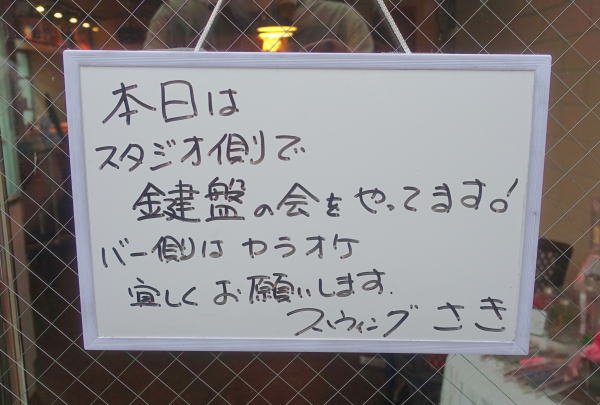 本日は
スタジオ側で
鍵盤の会をやってます!
バー側はカラオケ
宜しくお願いします.
スウィング さき